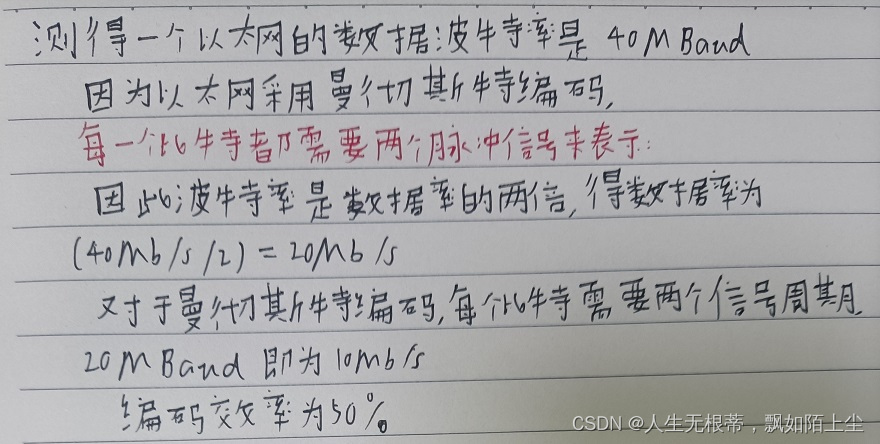 测得一个以太网的数据波特率是 40MBaud
因为以太网采用曼彻斯特编码,
每一个比特都需要两个脉冲信号来表示:
因此波特率是数据率的两倍,得数据率为
(40Mb/s/2)=20Mb/s
对于曼彻斯特编码,每个比特需要两个信号周期,
20MBaud 即为 10Mb/s
编码效率为50%。
CSDN @人生无根蒂,飘如陌上尘